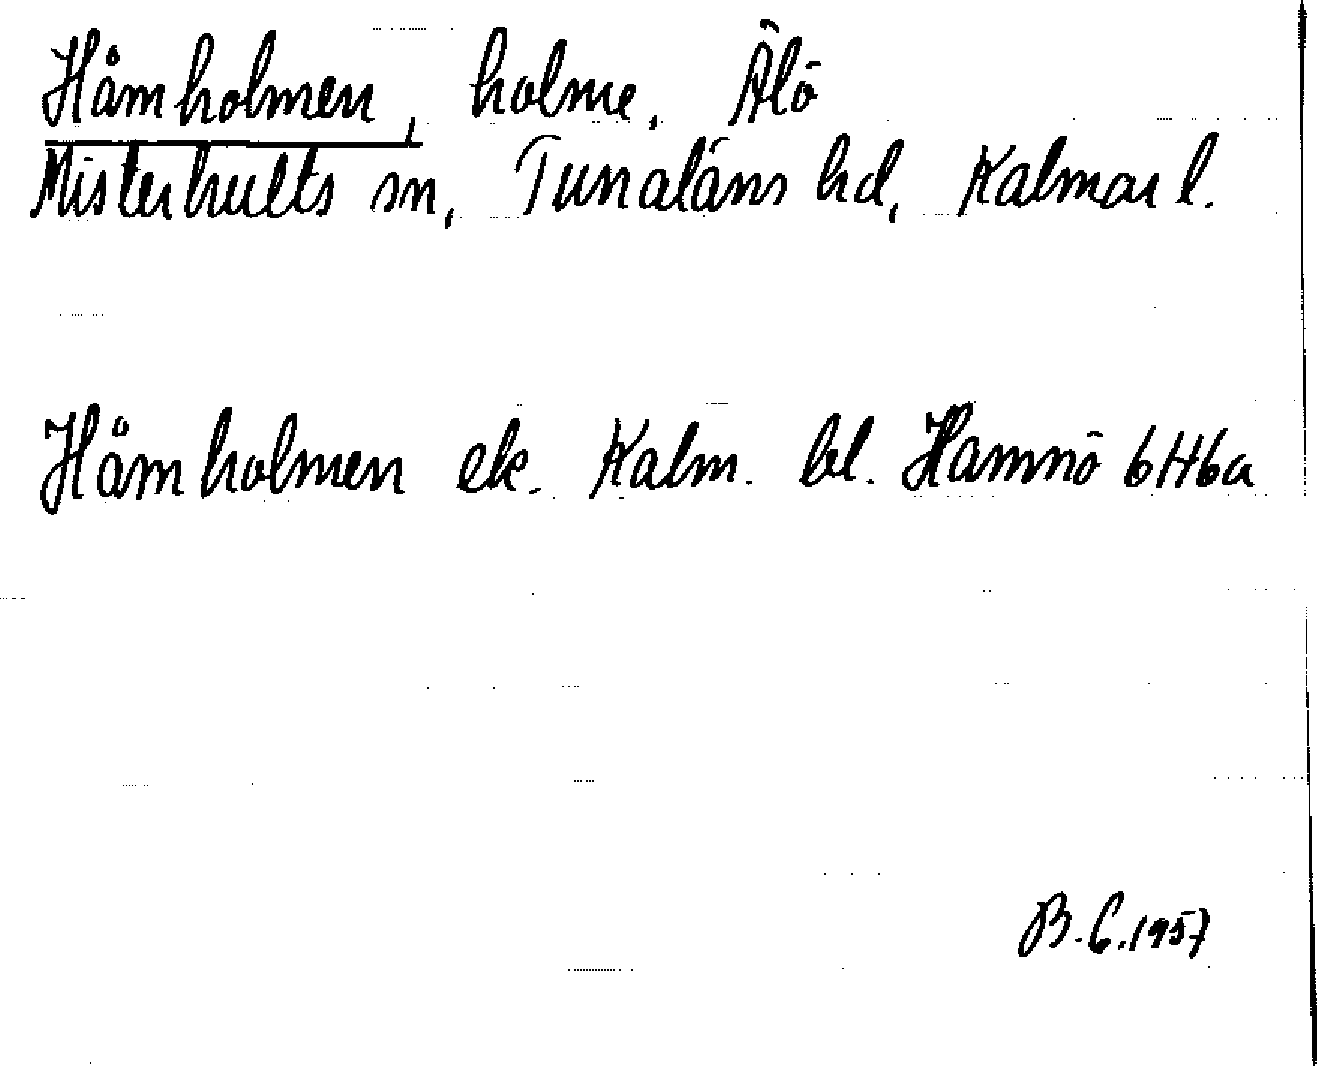 Håmholmen, holme, Älö
Misterhults sn, Tunaläns hd, Kalmar l.
Håmholmen ek. Kalm. bl. Hamnö 6H6a
B.C. 1957